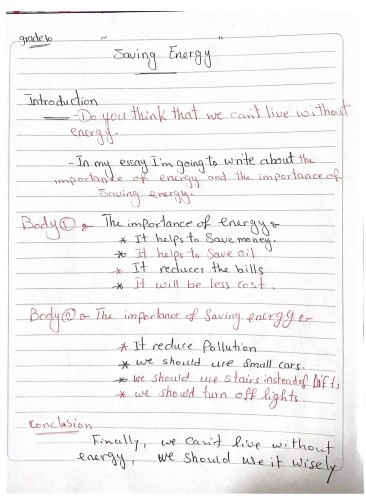 grade 6
Saving Energy
Introduction
- Do you think that we can't live without
energy.
- In my essay I'm going to write about the
importance of energy and the importance of
saving energy.
Body ① The importance of energy
* It helps to save money.
* It helps to save oil
* It reduces the bills
* It will be less cost.
Body ② The importance of saving energy
* It reduce Pollution
* we should use small cars.
* we should use stairs instead of lifts
* we should turn off lights.
Conclusion
Finally, we can't live without
energy, we should use it wisely